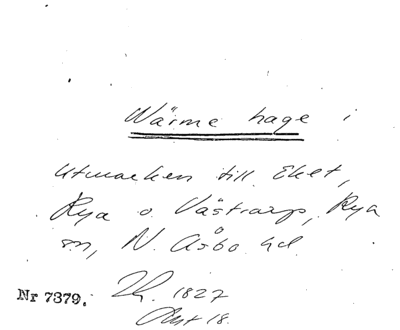 Wärme hage i
utmarken till Eket,
Rya o. Västrarp, Rya
sn, N. Åsbo hd.
Nr 7379. Lh. 1827
Akt 18.